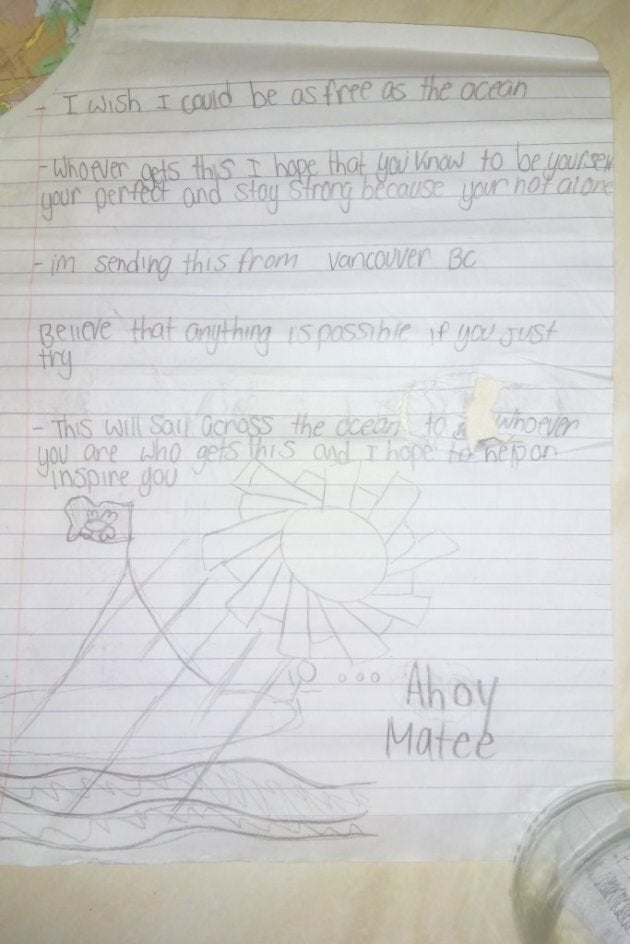 - I wish I could be as free as the ocean
- Whoever gets this I hope that you know to be yourself
your perfect and stay strong because your not alone
- im sending this from Vancouver BC
Believe that anything is possible if you just
try
- This will sail across the ocean to whoever
you are who gets this and I hope to help or
inspire you
Ahoy
Matee